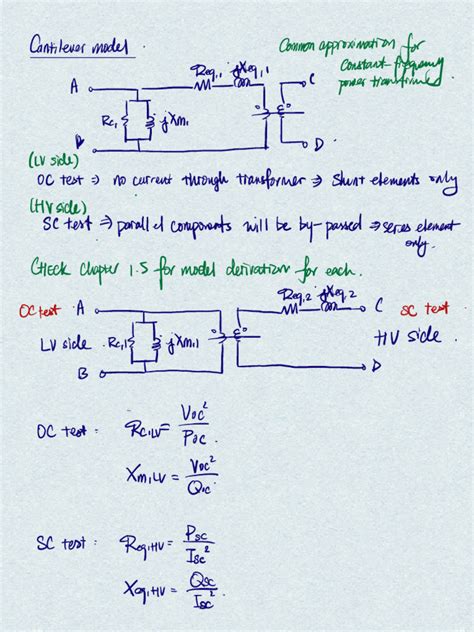 Cantilever model.
Common approximation for
constant-frequency
power transformer.
Req,1 jXeq,1
A
C
Rc,1 jXm,1
B
D
(LV side)
OC test ⇒ no current through transformer ⇒ shunt elements only
(HV side)
SC test ⇒ parallel components will be by-passed ⇒ series element
only.
CHECK Chapter 1.5 for model derivation for each.
Req,2 jXeq,2
OC test A
C SC test
LV side. Rc,1 jXm,1
HV side.
B
D
OC test: Rc,LV = Voc² / Poc
Xm,LV = Voc² / Qoc
SC test: Req,HV = Psc / Isc²
Xeq,HV = Qsc / Isc².